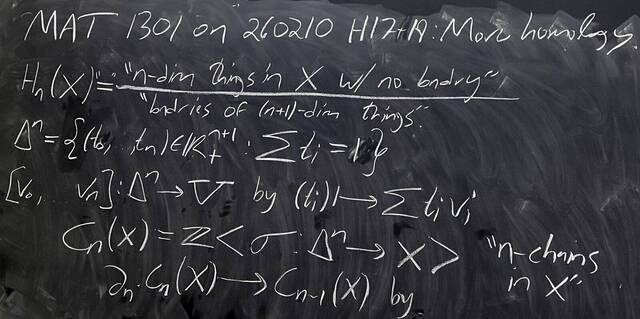 MAT 1301 on 260210 H17+19: More homology
H_n(X) "=" "n-dim things in X w/ no bndry" / "bndries of (n+1)-dim things".
Δ^n = {(t_0, ..., t_n) ∈ ℝ_+^{n+1} : Σ t_i = 1}
[v_0, ... v_n] : Δ^n → V by (t_i) ↦ Σ t_i v_i
C_n(X) = ℤ< σ: Δ^n → X > "n-chains in X"
∂_n : C_n(X) → C_{n-1}(X) by